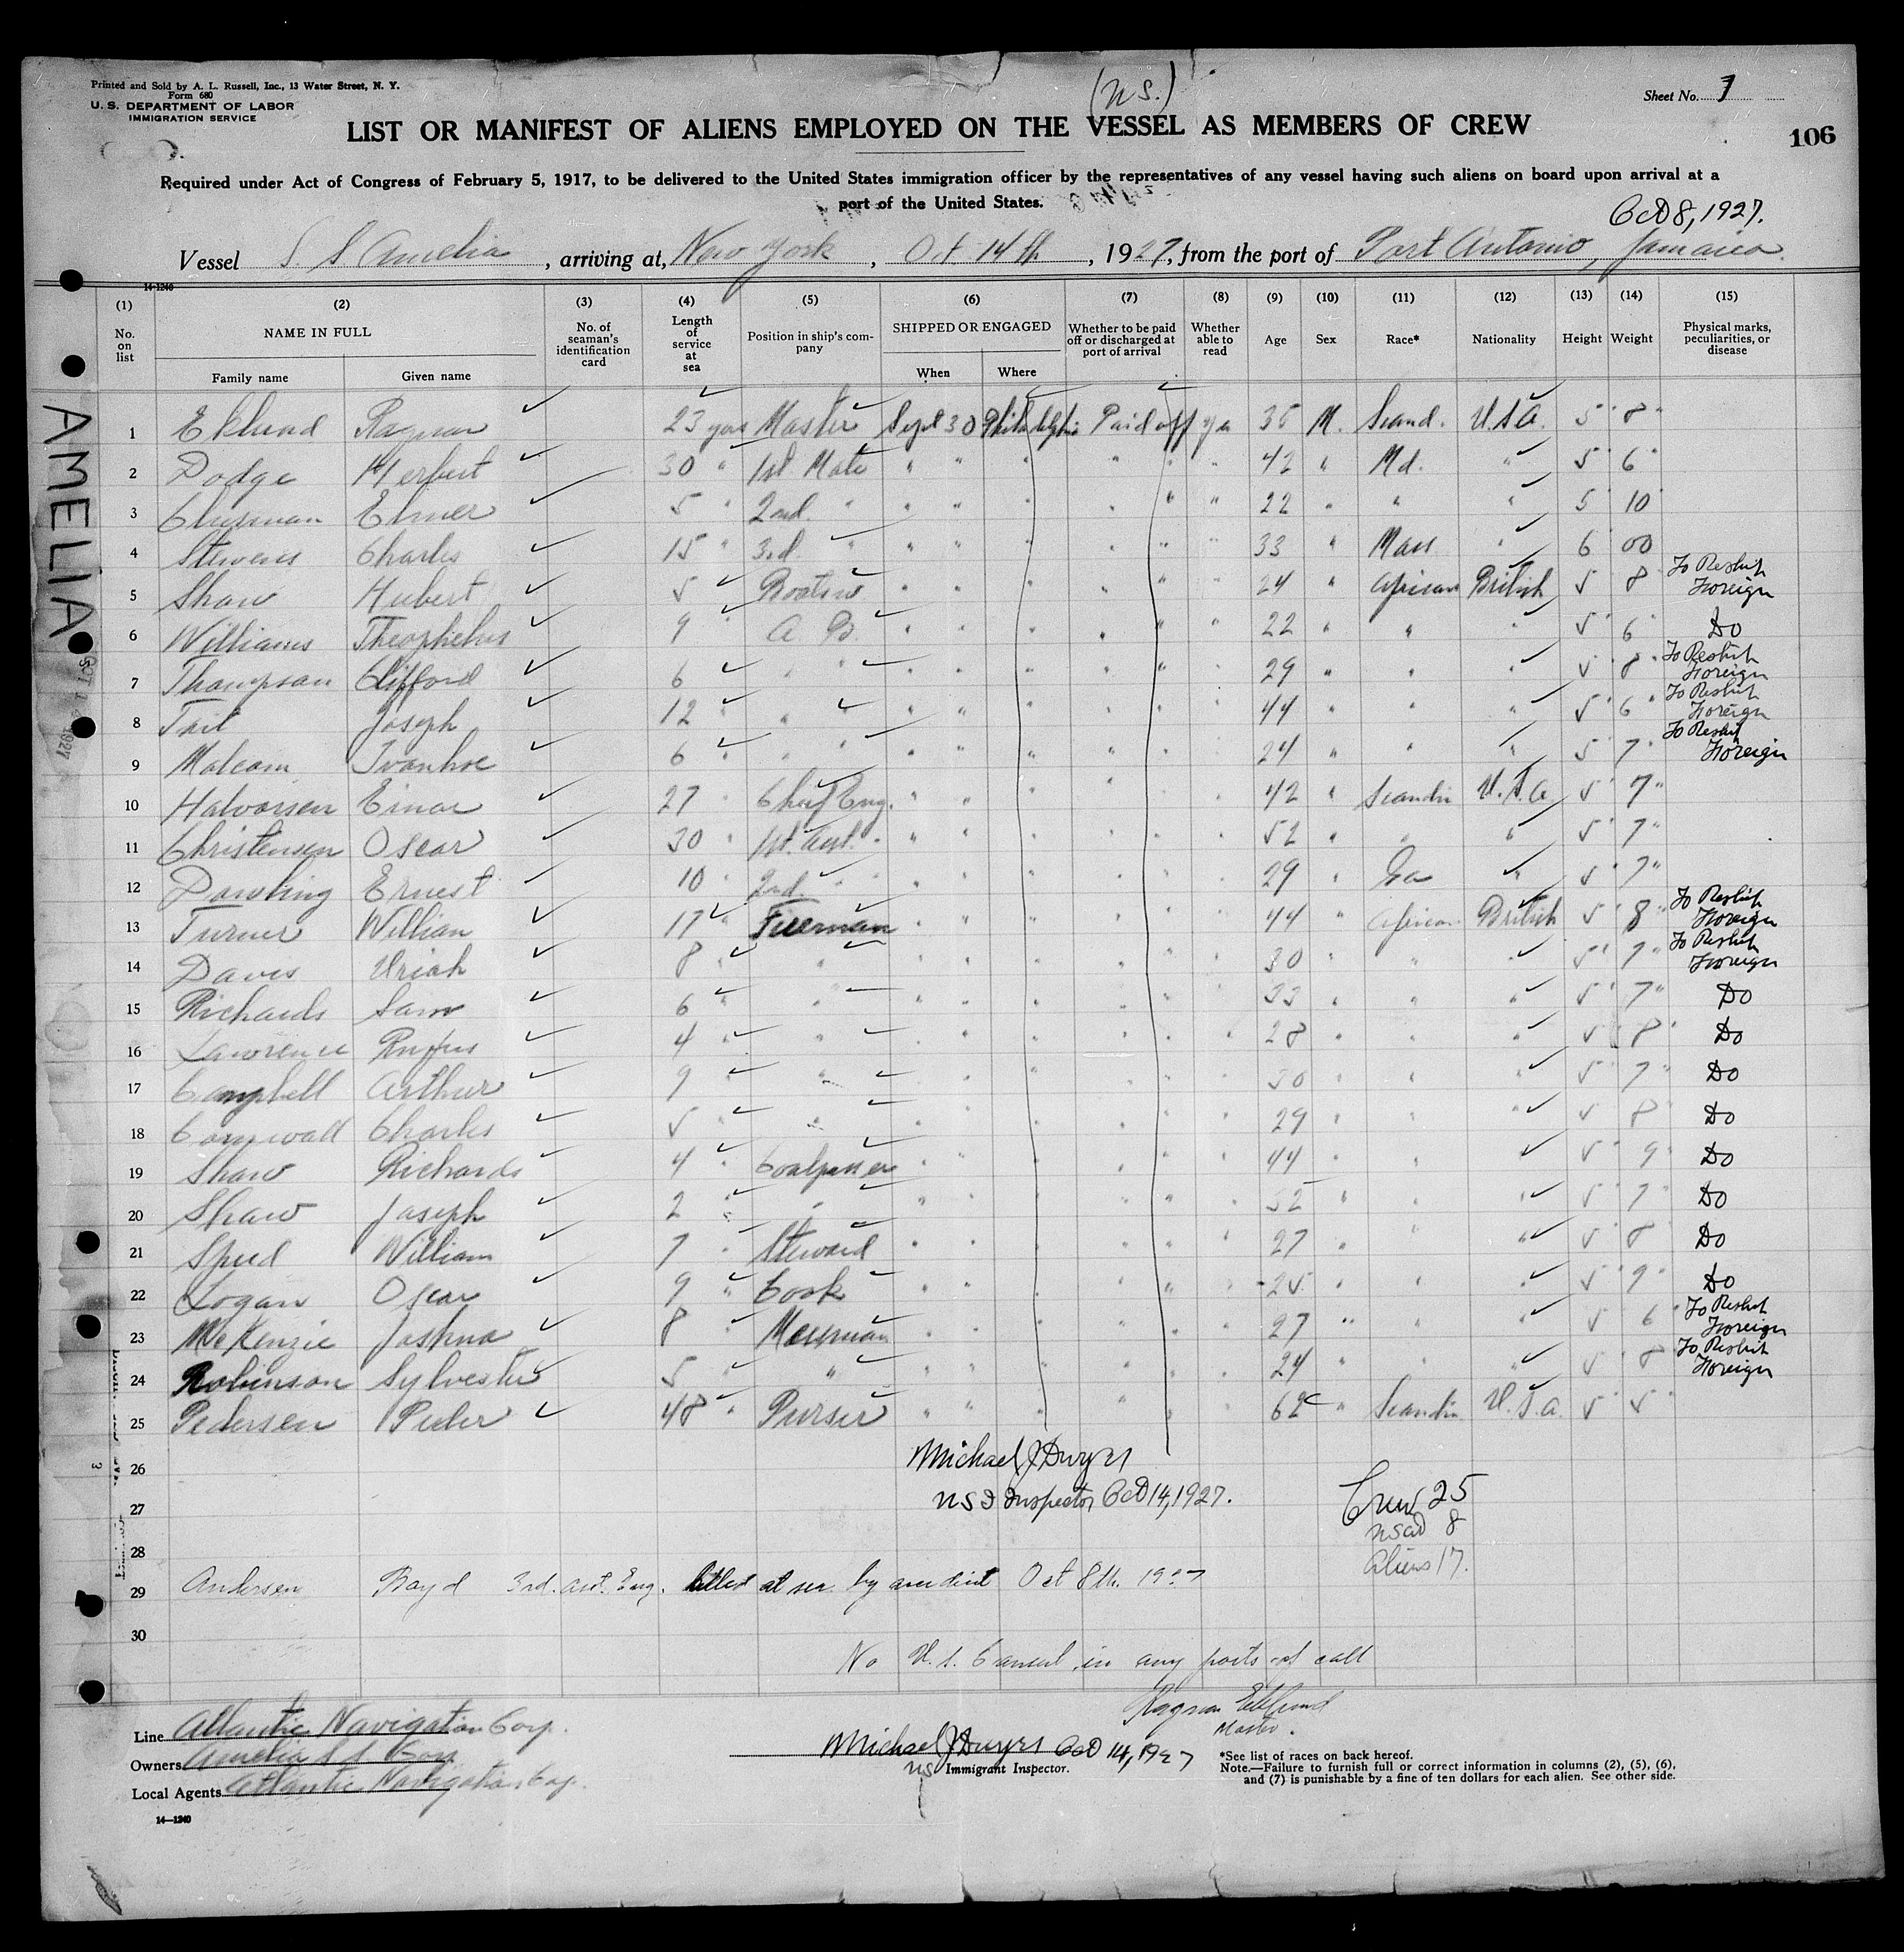 Printed and Sold by A. L. Russell, Inc., 13 Water Street, N. Y.
Form 680
U. S. DEPARTMENT OF LABOR
IMMIGRATION SERVICE
(N.S.)
Sheet No. 1
LIST OR MANIFEST OF ALIENS EMPLOYED ON THE VESSEL AS MEMBERS OF CREW
106
Required under Act of Congress of February 5, 1917, to be delivered to the United States immigration officer by the representatives of any vessel having such aliens on board upon arrival at a
port of the United States.
Oct 8, 1927.
Vessel S. S Amelia, arriving at, New York, Oct 14th, 1927, from the port of Port Antonio, Jamaica.
14-1240
(1) (2) (3) (4) (5) (6) (7) (8) (9) (10) (11) (12) (13) (14) (15)
No. on list NAME IN FULL No. of seaman's identification card Length of service at sea Position in ship's company SHIPPED OR ENGAGED Whether to be paid off or discharged at port of arrival Whether able to read Age Sex Race* Nationality Height Weight Physical marks, peculiarities, or disease
Family name Given name When Where
AMELIA
1 Eklund Ragnar 23 yrs Master Sept 30 Philadelphia Paid off yes 35 M. Scand. U.S.A. 5' 8"
2 Dodge Herbert 30 " 1st Mate " " " " " " 42 " Md. " 5' 6"
3 Elmer 5 " 2nd. " " " " " " " 22 " " " 5' 10"
4 Stevens Charles 15 " 3rd. " " " " " " " 33 " Mass " 6' 00
5 Shaw Hubert 5 " Boatsw " " " " " " 24 " African British 5' 8" To Reship Foreign
6 Williams Theophelus 9 " A. B. " " " " " " 22 " " " 5' 6" Do
7 Thompson Clifford 6 " " " " " " " " 29 " " " 5' 8" To Reship Foreign
8 Tait Joseph 12 " " " " " " " " 44 " " " 5' 6" To Reship Foreign
9 Malcom Ivanhoe 6 " " " " " " " " 24 " " " 5' 7" To Reship Foreign
10 Halvorsen Einar 27 " Chief Eng. " " " " " " 42 " Scandin U.S.A 5' 7"
11 Christensen Oscar 30 " 1st. Asst. " " " " " " 52 " " " 5' 7"
12 Dowling Ernest 10 " 2nd. " " " " " " " 29 " Ga " 5' 7"
13 Turner William 17 " Fireman " " " " " " 44 " African British 5' 8" To Reship Foreign
14 Davis Uriah 8 " " " " " " " " 30 " " " 5' 7" To Reship Foreign
15 Richards Sam 6 " " " " " " " " 33 " " " 5' 7" Do
16 Lawrence Rufus 4 " " " " " " " " 28 " " " 5' 8" Do
17 Campbell Arthur 9 " " " " " " " " 30 " " " 5' 7" Do
18 Cornwall Charles 5 " " " " " " " " 29 " " " 5' 8" Do
19 Shaw Richards 4 " Coalpasser " " " " " " 44 " " " 5' 9" Do
20 Shaw Joseph 2 " " " " " " " " " " " 5' 7" Do
21 Speed William 7 " Steward " " " " " " 27 " " " 5' 8" Do
22 Logan Oscar 9 " Cook " " " " " " 25 " " " 5' 9" Do
23 McKenzie Joshua 8 " Messman " " " " " " 27 " " " 5' 6" To Reship Foreign
24 Robinson Sylvester 5 " " " " " " " " 24 " " " 5' 8" To Reship Foreign
25 Pedersen Peder 48 " Purser " " " " " " 62 " Scandin U.S.A. 5' 5"
26 Michael J Dwyer
27 NSI Inspector Oct 14, 1927. Crew 25
28 8
29 Andersen Boyd 3rd. Asst. Eng. killed at sea by accident Oct 8th. 1927 Aliens 17.
30
No U.S. Consul in any ports of call
Ragnar Eklund
Master.
Line Atlantic Navigation Corp.
Owners Amelia S.S. Corp
Local Agents Atlantic Navigation Corp.
Michael J Dwyer Oct 14, 1927
NS Immigrant Inspector.
*See list of races on back hereof.
Note.—Failure to furnish full or correct information in columns (2), (5), (6),
and (7) is punishable by a fine of ten dollars for each alien. See other side.
14—1240